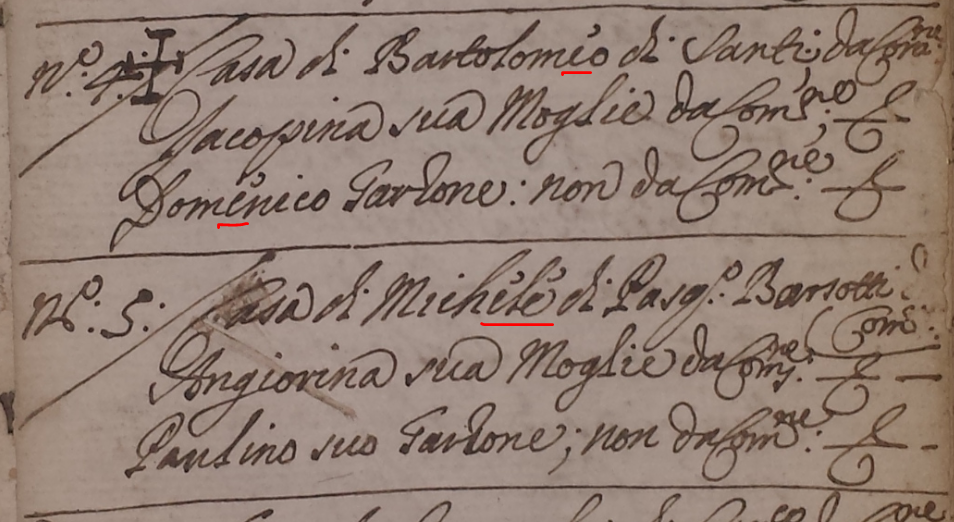 N.º 4: Casa di Bartolomèo di Santi; da Com.ne
Jacopina sua Moglie da Com.ne
Domènico Garzone: non da Com.ne:
N.º 5: Casa di Michèlè di Pasq.º Barsotti
Com.e:
Angiorina sua Moglie da Com.ne:
Paulino suo Garzone; non da Com.ne: